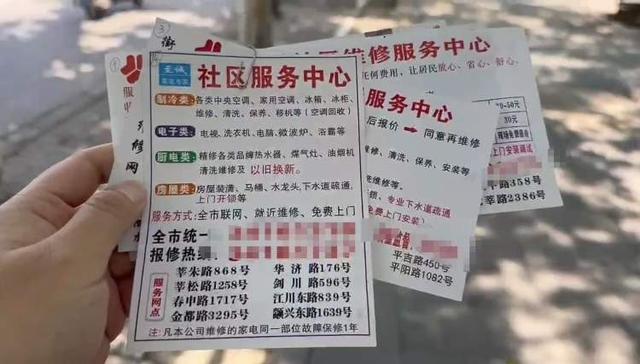 ③
街
至诚
社区服务中心
制冷类:各类中央空调、家用空调、冰箱、冰柜、
维修、清洗、保养、移机等(空调回收)
电子类:电视、洗衣机、电脑、微波炉、浴霸等
厨电类:精修各类品牌热水器、煤气灶、油烟机
清洗维修及以旧换新。
房屋类:房屋装潢、马桶、水龙头、下水道疏通、
上门开锁等)
服务方式:全市联网、就近维修、免费上门
全市统一
报修热线
服务网点
莘朱路868号 华济路176号
莘松路1258号 剑川路596号
春申路1717号 江川东路839号
金都路3295号 颛兴东路1639号
注:凡本公司维修的家电同一部位故障保修1年
维修服务中心
任何费用,让居民放心、省心、舒心。
服务中心
后报价→同意再维修
修、清洗、保养、安装等
专业下水道疏通
上门安装)
平吉路450号
平阳路1082号
30元
上门安装调试
路358号
莘路2386号